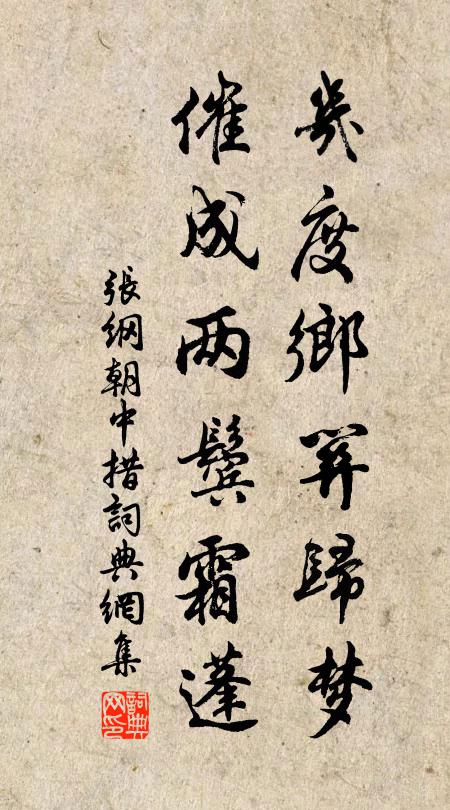 幾度鄉關歸梦
催成两鬢霜蓬
張綱朝中措詞典網集
詞典
网印